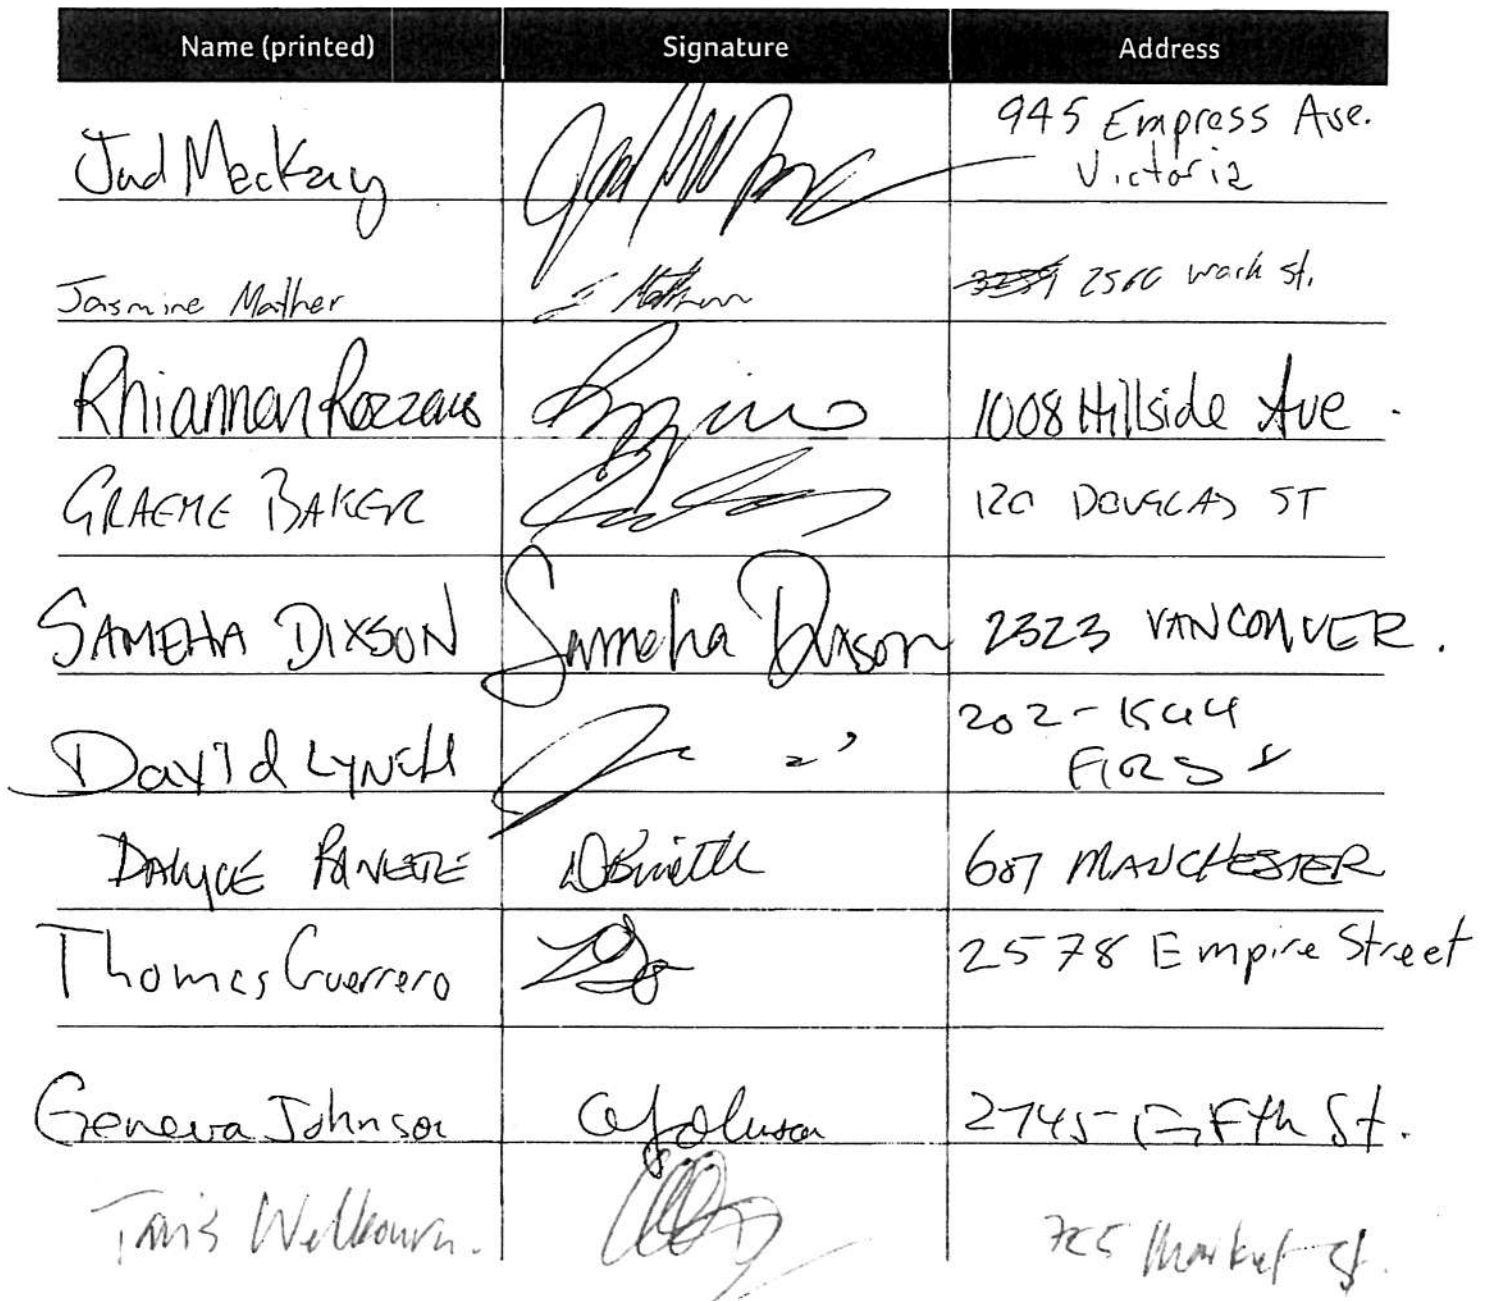 Name (printed) Signature Address
Jud MacKay 945 Empress Ave.
Victoria
Jasmine Mather J Mather 2566 Wark St.
Rhiannon 1008 Hillside Ave.
GRAEME BAKER 120 DOUGLAS ST
SAMEHA DIXSON Sameha Dixson 2323 VANCOUVER.
David LYNCH 202-
FIRST
607 MANCHESTER
Thomas Guerrero 2578 Empire Street
Geneva Johnson GJohnson 2745- Fifth St.
Welbourn. Market St.